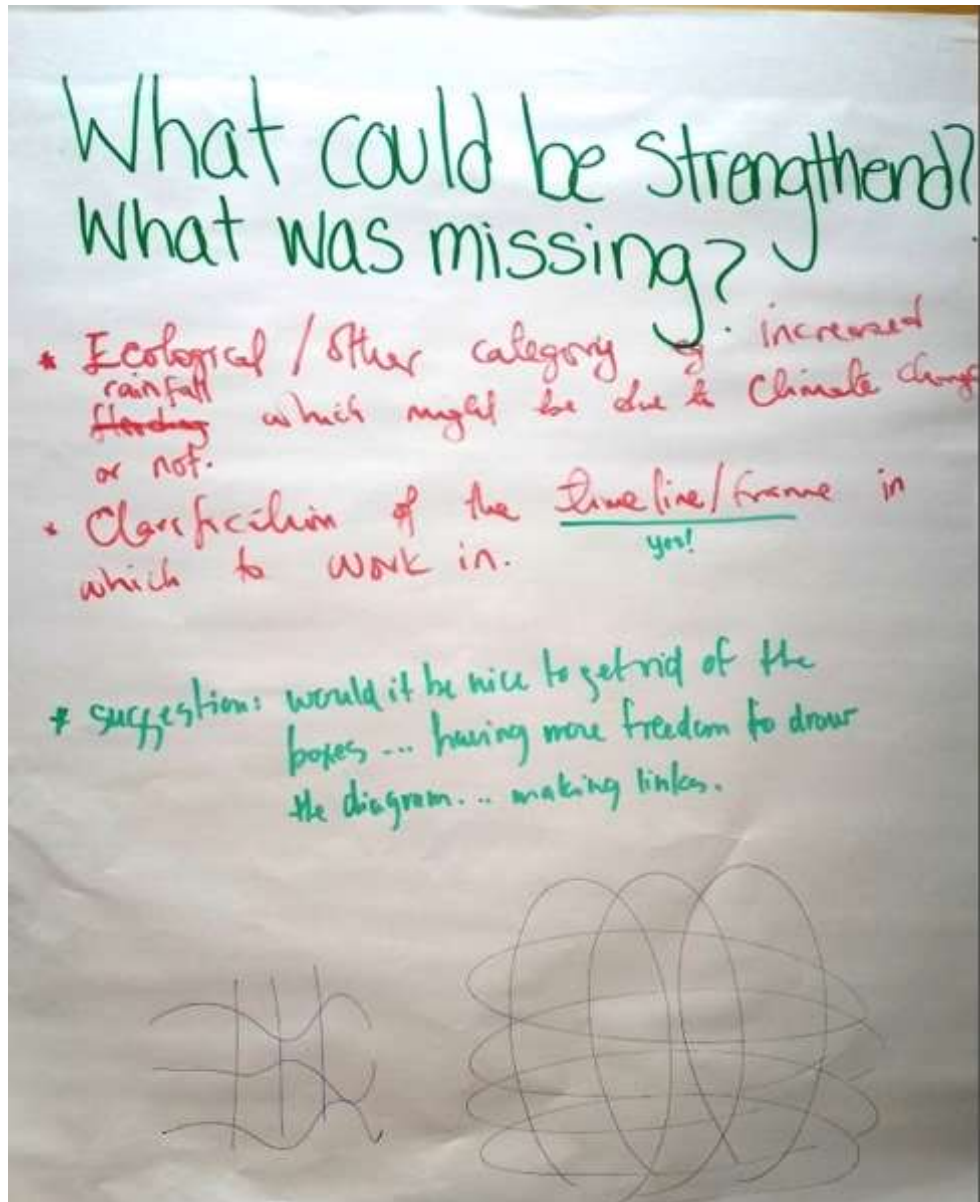 What could be Strengthend?
What was missing?
* Ecological / Other category of increased
rainfall
flooding which might be due to Climate change
or not.
* Clarification of the timeline/frame in
yes!
which to work in.
* suggestion: would it be nice to get rid of the
boxes ... having more freedom to draw
the diagram... making links.